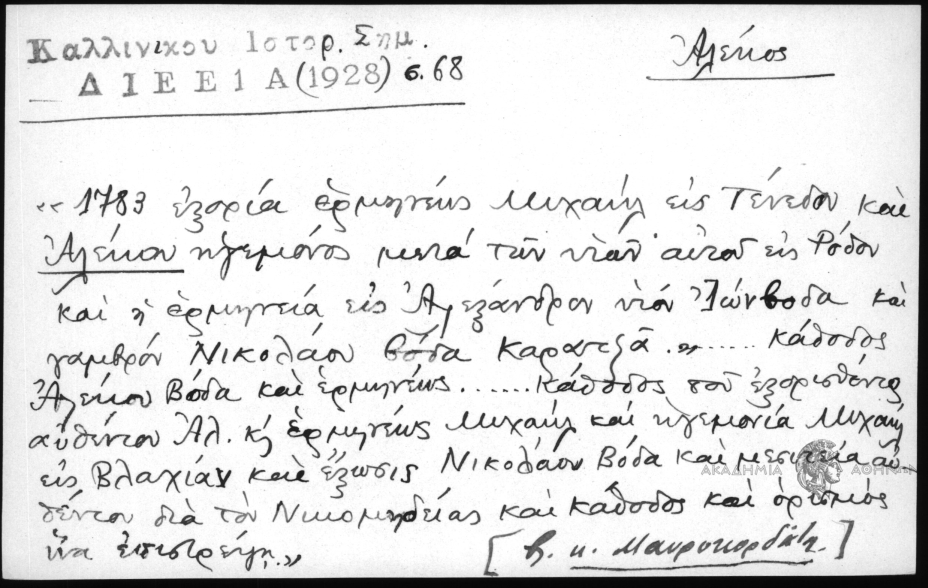 Καλλινικου Ιστορ. Σημ.
ΔΙΕΕ 1 Α (1928) σ. 68
Ἀλέκος
«1783 ἐξορία ἑρμηνέως Μιχαήλ εἰς Τένεδον καὶ
Ἀλέκου ἡγεμόνος μετά τῶν υἱῶν αὐτοῦ εἰς Ρόδον
καὶ ἡ ἑρμηνεία εἰς Ἀλεξάνδρον υἱόν Ἰωάνβοδα καὶ
γαμβρόν Νικολάου βόδα Καρατζᾶ.» ...... κάθοδος
Ἀλέκου Βόδα καὶ ἑρμηνέως ...... κάθοδος τοῦ ἐξορισθέντος
αὐθέντου Ἀλ. κ' ἑρμηνέως Μιχαήλ καὶ ἡγεμονία Μιχαήλ
εἰς Βλαχίαν καὶ ἔξωσις Νικολάου Βόδα καὶ μεσιτεία αὐ-
θέντου διὰ τὸν Νικομηδείας καὶ κάθοδος καὶ ὁρισμός
ἵνα ἐπιστρέψῃ.»
[β. κ. Μαυροκορδάτη.]
ΑΚΑΔΗΜΙΑ ΑΘΗΝΩΝ